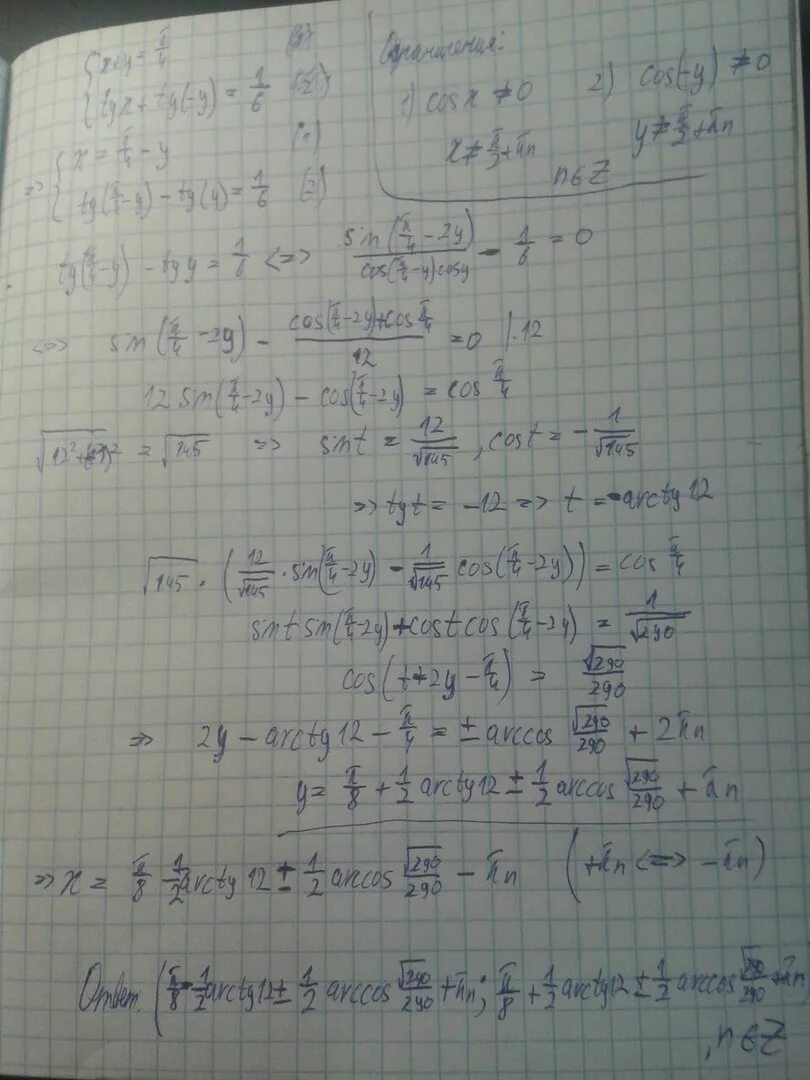 {x+y = π/4
{tgx + tg(-y) = 1/6 (2)
Ограничения:
1) cosx ≠ 0
2) cos(-y) ≠ 0
x ≠ π/2 + πn
y ≠ π/2 + πn
n∈Z
=> {x = π/4 - y (1)
{tg(π/4 - y) - tg(y) = 1/6 (2)
tg(π/4 - y) - tgy = 1/6 <=> sin(π/4 - 2y)/cos(π/4 - y)cosy - 1/6 = 0
<=> sin(π/4 - 2y) - (cos(π/4 - 2y) + cos π/4)/12 = 0 |·12
12 sin(π/4 - 2y) - cos(π/4 - 2y) = cos π/4
√(12² + (-1)²) = √145 => sint = 12/√145, cost = -1/√145
=> tgt = -12 => t = -arctg12
√145 · (12/√145 · sin(π/4 - 2y) - 1/√145 cos(π/4 - 2y)) = cos π/4
sintsin(π/4 - 2y) + costcos(π/4 - 2y) = 1/√290
cos(t + 2y - π/4) = √290/290
=> 2y - arctg12 - π/4 = ± arccos √290/290 + 2πn
y = π/8 + 1/2 arctg12 ± 1/2 arccos √290/290 + πn
=> x = π/8 - 1/2 arctg12 ± 1/2 arccos √290/290 - πn (+πn <=> -πn)
Ответ: (π/8 - 1/2 arctg12 ± 1/2 arccos √290/290 + πn; π/8 + 1/2 arctg12 ± 1/2 arccos √290/290 + πn
, n∈Z